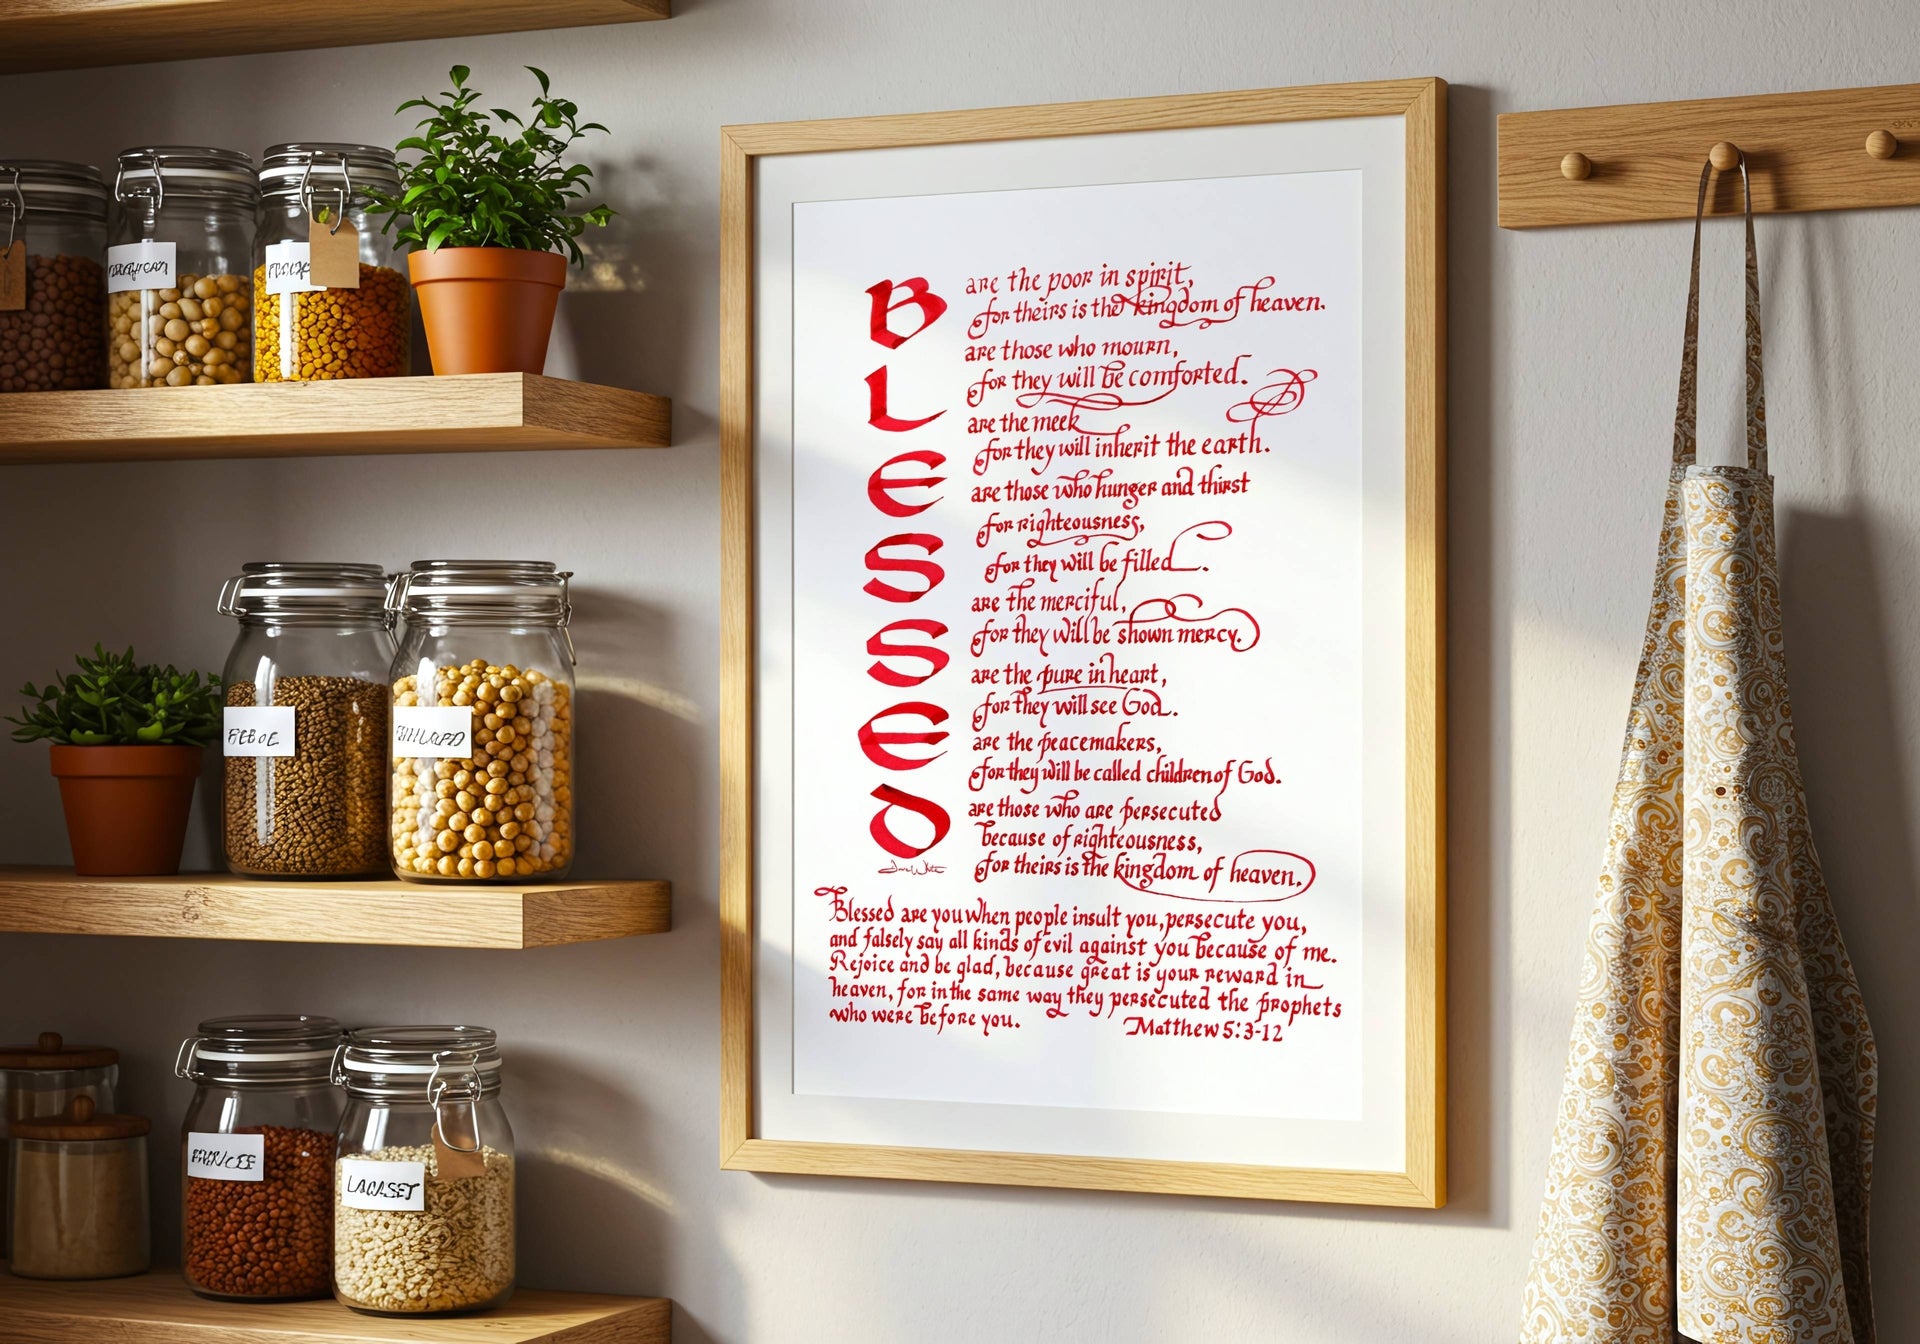 BLESSED
are the poor in spirit,
for theirs is the kingdom of heaven.
are those who mourn,
for they will be comforted.
are the meek
for they will inherit the earth.
are those who hunger and thirst
for righteousness,
for they will be filled.
are the merciful,
for they will be shown mercy.
are the pure in heart,
for they will see God.
are the peacemakers,
for they will be called children of God.
are those who are persecuted
because of righteousness,
for theirs is the kingdom of heaven.
Blessed are you when people insult you, persecute you,
and falsely say all kinds of evil against you because of me.
Rejoice and be glad, because great is your reward in
heaven, for in the same way they persecuted the prophets
who were before you.
Matthew 5:3-12